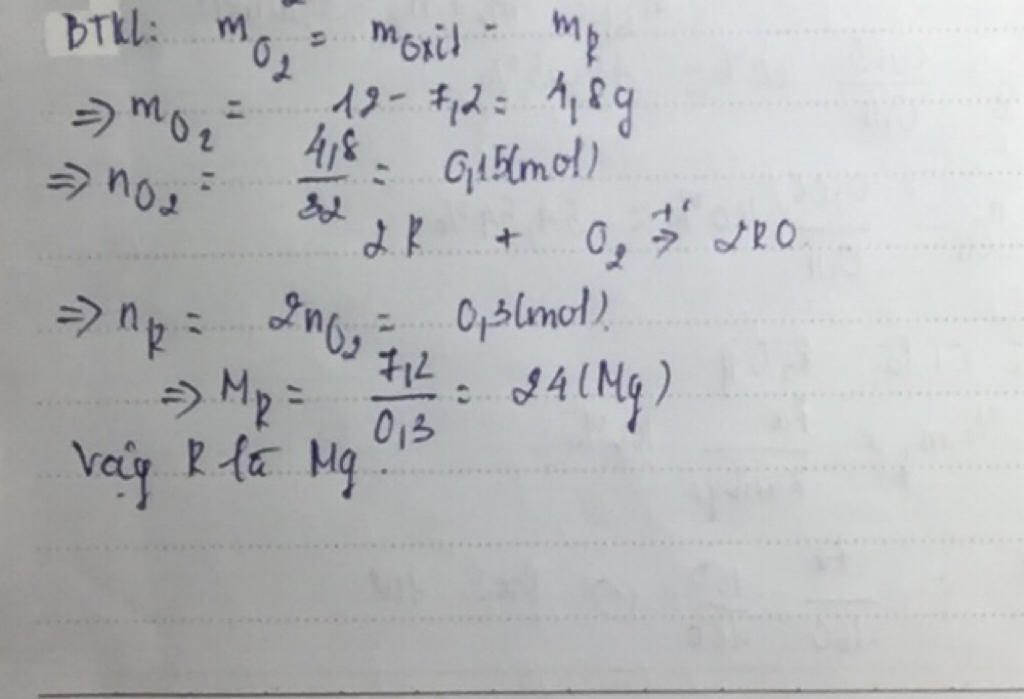 BTKL: m_O₂ = m_oxit - m_R
⇒ m_O₂ = 12 - 7,2 = 4,8g
⇒ n_O₂ = 4,8/32 = 0,15(mol)
2R + O₂ →t° 2RO
⇒ n_R = 2n_O₂ = 0,3(mol).
⇒ M_R = 7,2/0,3 = 24(Mg)
Vậy R là Mg.